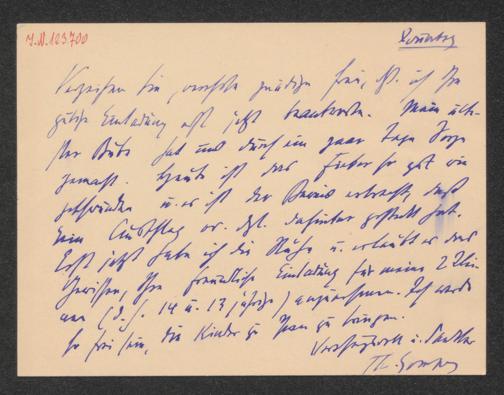 J.N. 123700
Sonntag
Verzeihen Sie, verehrte gnädige Frau, dß. ich Ihre
gütige Einladung erst jetzt beantworte. Mein ält-
ster Bube hat uns durch ein paar Tage Sorge
gemacht. Heute ist das Fieber so gut wie
geschwunden u. es ist der Beweis erbracht, daß
kein Ausschlag od. dgl. dahinter gesteckt hat.
Erst jetzt habe ich die Ruhe u. erlaubt es das
Gewissen, Ihre freundliche Einladung für meine 2 Klei-
nen (d. h. 14 u. 13 jährige) anzunehmen. Ich werde
so frei sein, die Kinder zu Ihnen zu bringen.
Verehrungsvoll u. dankbar
Th. Gomperz